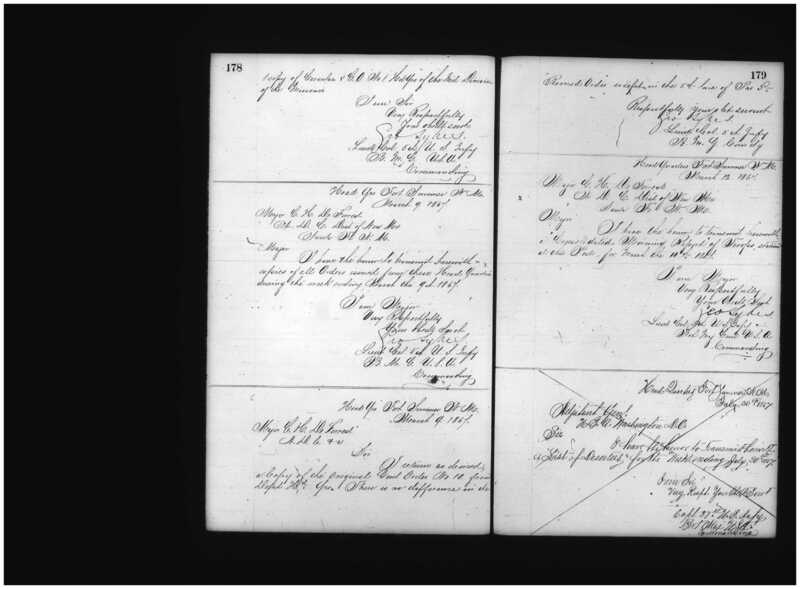 178
1 copy of Circular & G.O. No 1 Hd Qrs of the Mil Division
of the Missouri
I am Sir
Very Respectfully
Your obdt servt
Geo Sykes
Lieut Col 5th U.S. Infy
B. M. G. U.S.A.
Commanding
Head Qrs Fort Sumner N. Mo.
March 9. 1867.
Major C. H. De Forrest
A. A. G. Dist of New Mex
Santa Fe N. M.
Major
I have the honor to transmit herewith
copies of all Orders issued from these Head Quarters
during the week ending March the 9th 1867.
I am Major
Very Respectfully
Your Obdt Servt
Geo Sykes
Lieut Col 5th U.S. Infy
B. M. G. U.S.A.
Commanding
Head Qrs Fort Sumner N. Mo.
March 9. 1867.
Major C. H. De Forrest
A.A.A.G. &c
Sir
I return as desired
a Copy of the original Genl Order No 10 from
Dept Hd Qrs. There is no difference in the
179
Revised Order except in the 5th line of Par
Respectfully your obt servant
Geo Sykes
Lieut Col 5th Infy
B. M. G. Comdg
Head Quarters Fort Sumner N. M.
March 12. 1867.
Major C. H. De Forrest
A. A. G. Dist of New Mex
Santa Fe N. Mo.
Major
I have the honor to transmit herewith
Consolidated Morning Report of Troops stationed
at this Post for March the 10th 1867.
I am Major
Very Respectfully
Your Obdt Servt
Geo Sykes
Lieut Col 5th U.S. Infy
Bvt My Genl U.S.A
Commanding
Head Quarters Fort Sumner N. M.
July 20th 1867
Adjutant Genl.
U.S.A. Washington D.C.
Sir
I have the honor to Transmit herewith
a "List of Deserters" for the Week ending July 20th 1867.
I am Sir
Very Respt Your Obdt Servt
Capt 37th U.S. Infy
Bvt Maj U.S.A.
Commanding